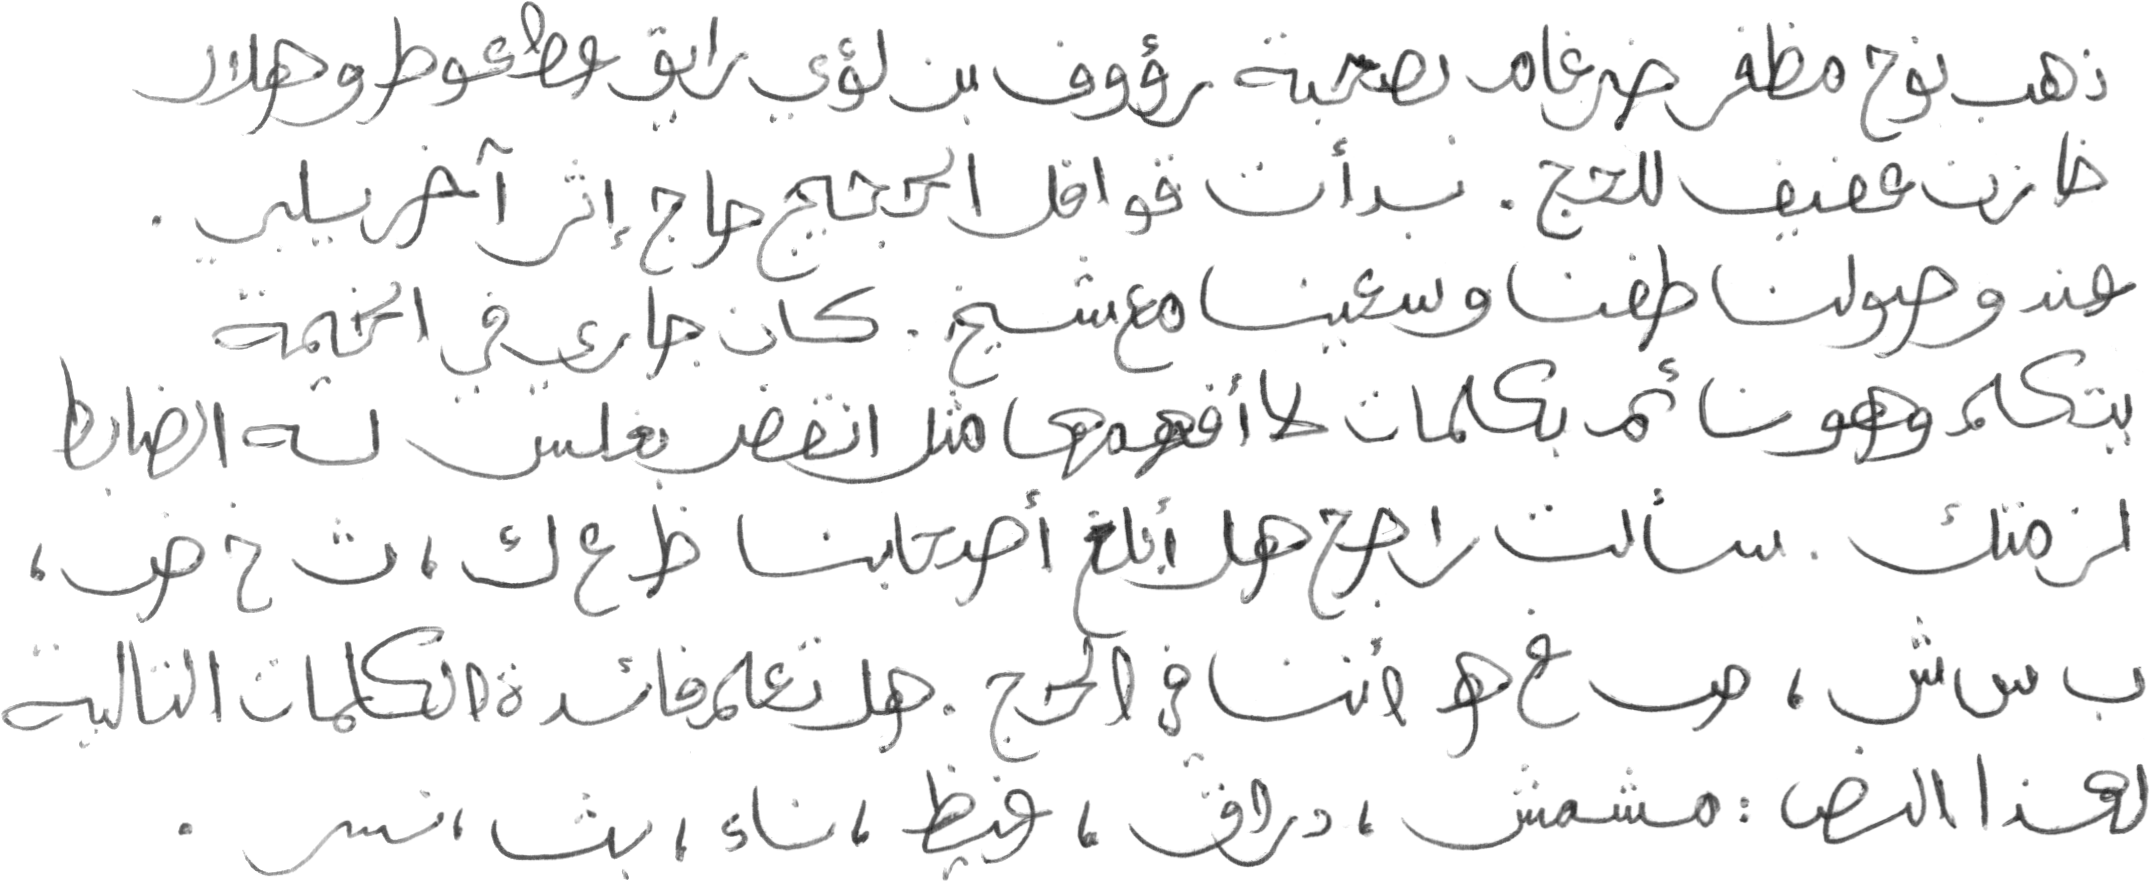 ذهب نوح مظفر ضرغام بصحبة رؤوف بن لؤي رايق عطعوط وهلال
خازن عفيف للحج . بدأت قوافل الحجيج حاج إثر آخر يلبي .
عند وصولنا طفنا وسعينا مع شيخ . كان جاري في الخيمة
يتكلم وهو نائم بكلمات لا أفهمها مثل انقض بغلس لته الضابط
لزمتك . سألت راجح هل أبلغ أصحابنا ظ ع ك ، ث خ ض ،
ب س ش ، ص غ ه أننا في الحج . هل تعلم فائدة الكلمات التالية
لهذا النص : مشمش ، دراق ، غيظ ، ناء ، بث ، نسر .